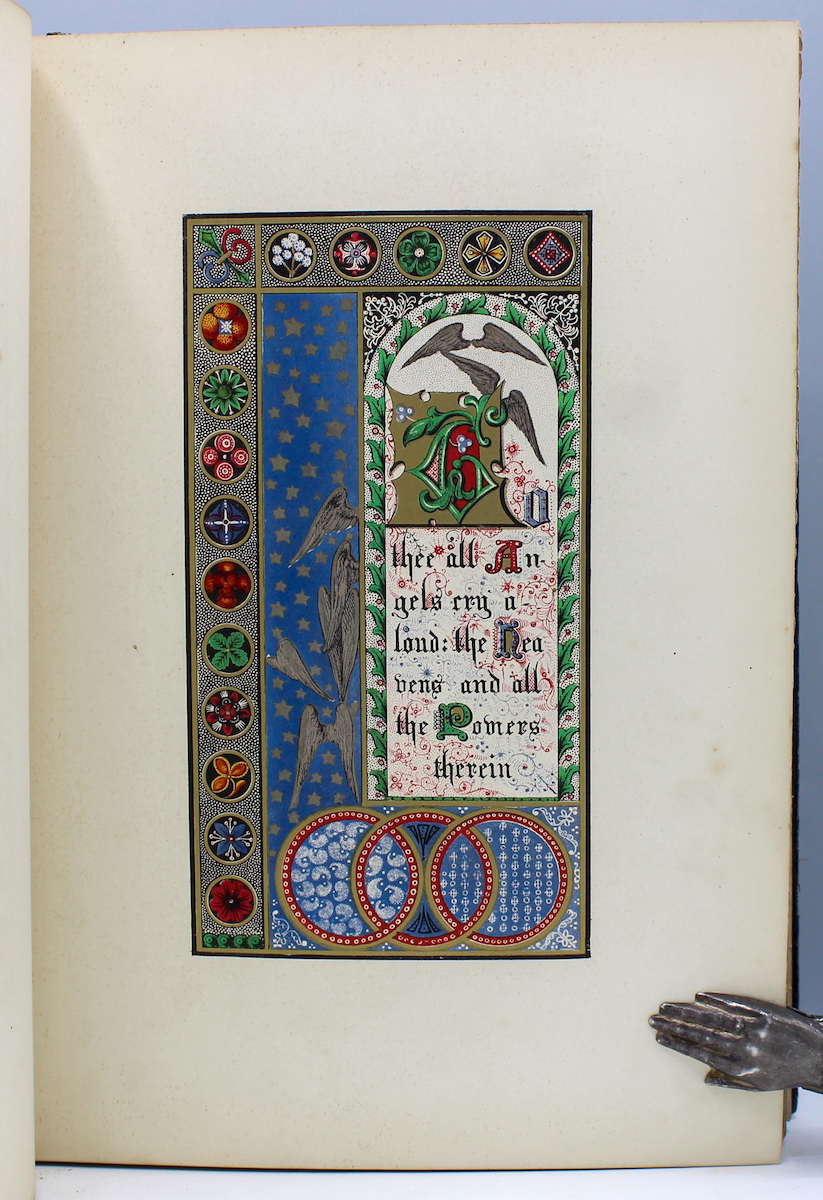 To
thee all An-
gels cry a-
loud: the Hea
vens and all
the Powers
therein